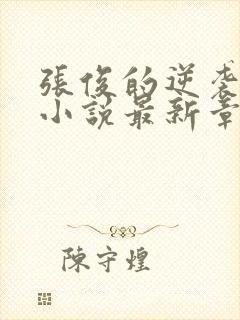 張俊的逆袭
小說最新章
陳守煌